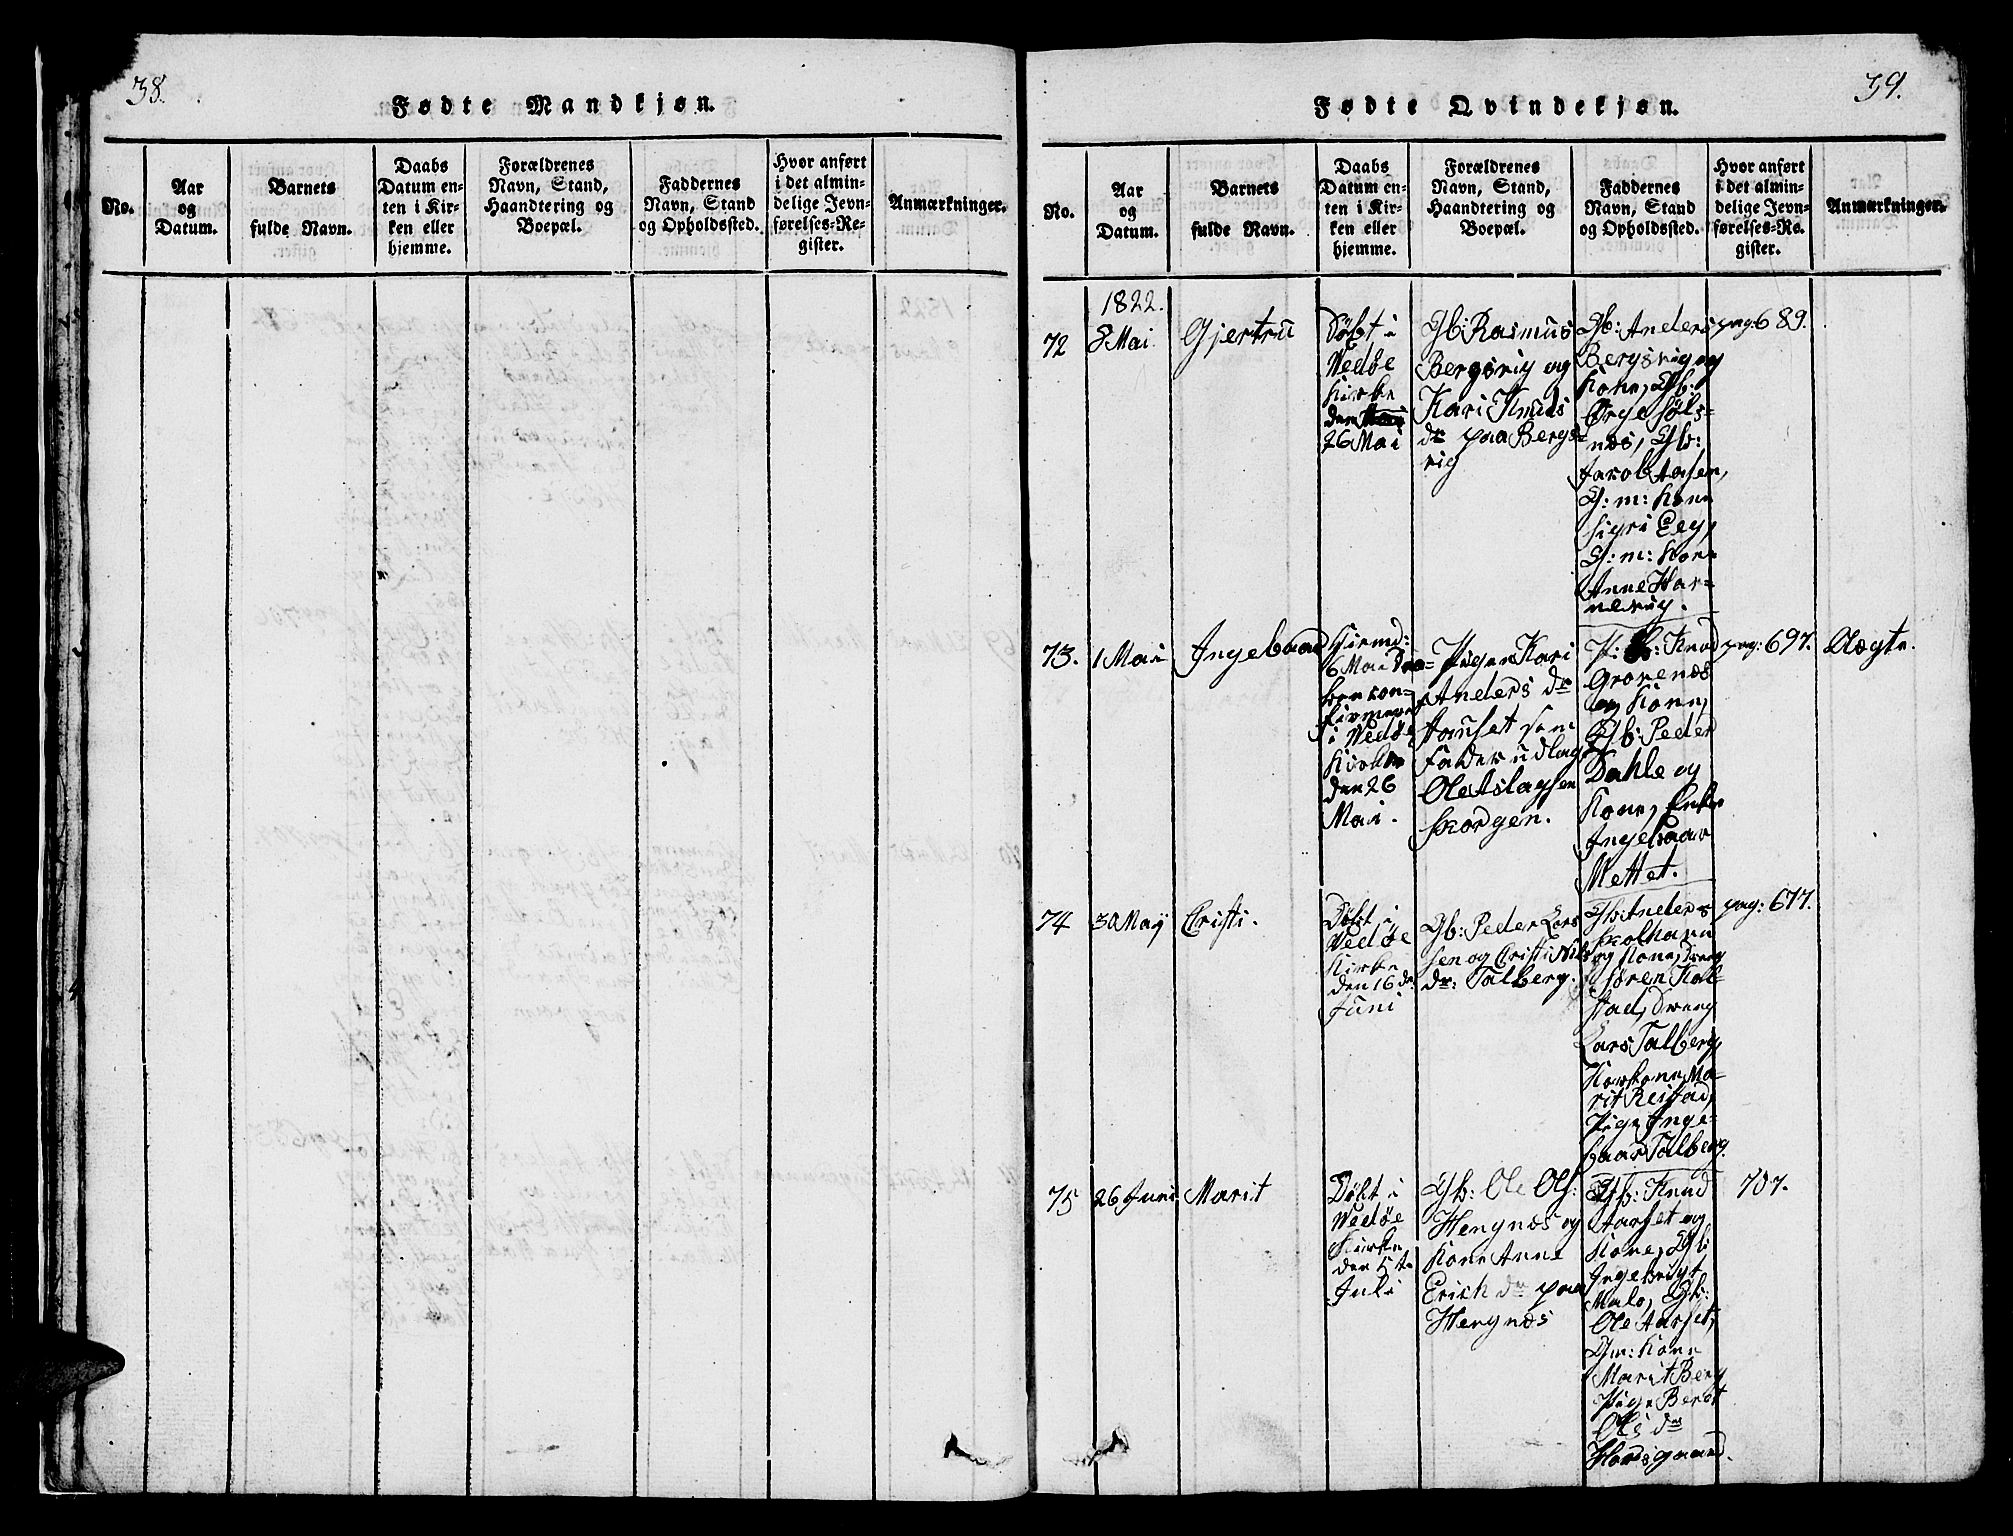 38.
Fødte Mandkjøn.
No.
Aar
og
Datum.
Barnets
fulde Navn.
Daabs
Datum en-
ten i Kir-
ken eller
hjemme.
Forældrenes
Navn, Stand,
Haandtering og
Boepæl.
Faddernes
Navn, Stand
og Opholdssted.
Hvor anført
i det almin-
delige Jevn-
førelses-Re-
gister.
Anmærkninger.
39.
Fødte Qvindekjøn.
No.
Aar
og
Datum.
Barnets
fulde Navn.
Daabs
Datum en-
ten i Kir-
ken eller
hjemme.
Forældrenes
Navn, Stand,
Haandtering og
Boepæl.
Faddernes
Navn, Stand
og Opholdssted.
Hvor anført
i det almin-
delige Jevn-
førelses-Re-
gister.
Anmærkninger.
1822.
72
8 Mai
Gjertru
Døbt i
Vedøe
Kirke
den
26 Mai
Gb: Rasmus
Bergsvig og
Kari Knuds
dr paa Bergs-
vig
Gb: Anders
Bergsvig og
Kone, Gb:
Ørge Søls-
næs, Gb:
Jacob Aasen,
G: m: Kone
Sigri Eeg,
G: m: Kone
Anne Har-
nesvig.
pag: 689.
73.
1 Mai
Ingebaar
Hiemd:
6 Mai Daa-
ben con-
firmeret
i Vedøe
Kirke
den 26
Mai.
Pigen Kari
Anders dr
som
Fader udlagt
Ole Aslagsen
Skorgen.
P: Knud
Grovenæs
og Kone,
Gb: Peder
Dahle og
Kone, Enke
Ingebaar
Mettet.
pag: 697.
Uægte.
74
30 Maj
Cristi.
Døbt i
Vedøe
Kirke
den 16 de
Juni
Gb: Peder Lars
sen og Cristi Nils
dr: Talberg.
Gb: Anders
og Kone, Dreng
Søren Kol-
stad, Dreng
Lars Talberg,
Kone Ma-
rit Reistad,
Pige Inge-
baar Talberg.
pag: 677.
75
26 Juni
Marit
Døbt i
Vedøe
Kirke
den 5te
Juli
Gb: Ole Ols:
Hengnæs og
Kone Anne
Erich dr paa
Hengnæs
Gb: Knud
Aarset og
Kone, Gb:
Ingebrigt
Malo, Gb:
Ole Aarset,
Gm: Kone
Marit Berg
Pige Beret
Ols dr
Hordsgaard.
707.